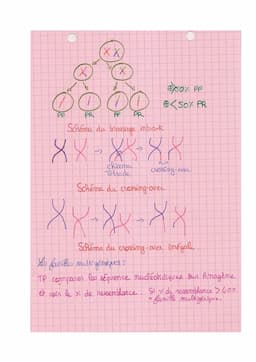 50% PP
< 50% PR
PP PR PP PR
Schéma du brassage
chiasma
tétrade
crossing-over
Schéma du crossing-over
Schéma du crossing-over inégal
Les familles multigéniques :
TP comparer les séquence nucléotidiques sur Anagène
et voir le % de ressemblance. Si % de ressemblance > 20%
= famille multigénique.